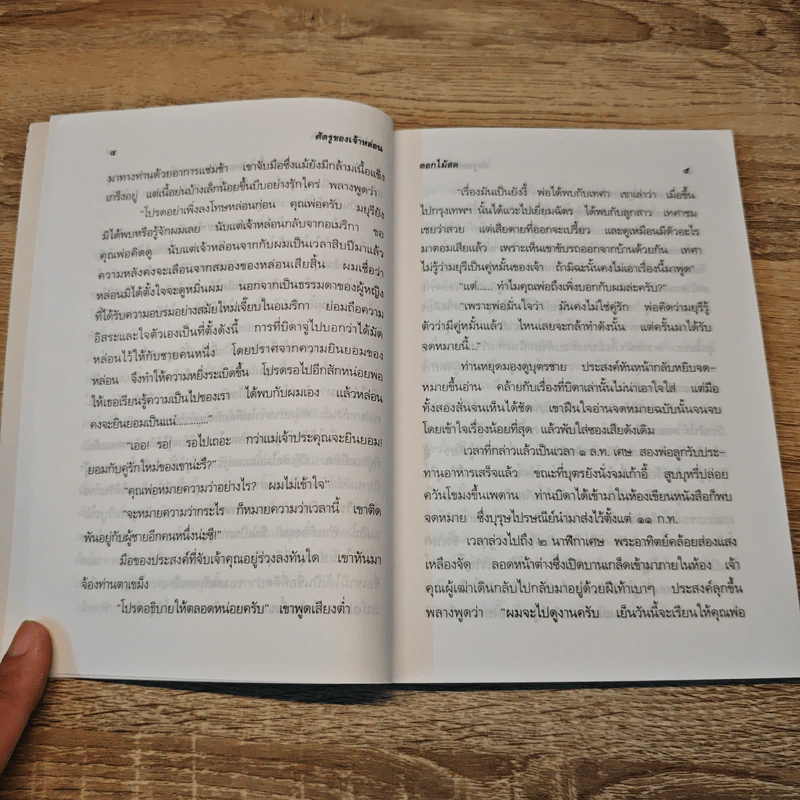 ๔
ศัตรูของเจ้าหล่อน
มาทางท่านด้วยอาการแช่มช้า เขาจับมือซึ่งแม้ยังมีกล้ามเนื้อแข็ง
เกร็งอยู่ แต่เนื้อย่นบ้างเล็กน้อยขึ้นบีบอย่างรักใคร่ พลางพูดว่า
“โปรดอย่าเพิ่งลงโทษหล่อนก่อน คุณพ่อครับ มยุรียัง
มิได้พบหรือรู้จักผมเลย นับแต่เจ้าหล่อนกลับจากอเมริกา ขอ
คุณพ่อคิดดู นับแต่เจ้าหล่อนจากกับผมเป็นเวลาสิบปีมาแล้ว
ความหลังคงจะเลือนจากสมองของหล่อนเสียสิ้น ผมเชื่อว่า
หล่อนมิได้ตั้งใจจะดูหมิ่นผม นอกจากเป็นธรรมดาของผู้หญิง
ที่ได้รับความอบรมอย่างสมัยใหม่เจี๊ยบในอเมริกา ย่อมถือความ
อิสระและใจตัวเองเป็นที่ตั้งดังนี้ การที่บิดาจู่ไปบอกว่าได้มัด
หล่อนไว้ให้กับชายคนหนึ่ง โดยปราศจากความยินยอมของ
หล่อน จึงทำให้ความหยิ่งระเบิดขึ้น โปรดรอไปอีกสักหน่อยพอ
ให้เธอเรียนรู้ความเป็นไปของเรา ได้พบกับผมเอง แล้วหล่อน
คงจะยินยอมเป็นแน่............”
“เออ! รอ! รอไปเถอะ กว่าแม่เจ้าประคุณจะยินยอม!
ยอมกับคู่รักใหม่ของเขาน่ะรึ?”
“คุณพ่อหมายความว่าอย่างไร? ผมไม่เข้าใจ”
“จะหมายความว่ากระไร ก็หมายความว่าเวลานี้ เขาติด
พันอยู่กับผู้ชายอีกคนหนึ่งน่ะซี!”
มือของประสงค์ที่จับเจ้าคุณอยู่ร่วงลงทันใด เขาหันมา
จ้องท่านตาเขม็ง
“โปรดอธิบายให้ตลอดหน่อยครับ” เขาพูดเสียงต่ำ
ดอกไม้สด
๕
“เรื่องมันเป็นยังงี้ พ่อได้พบกับเทศา เขาเล่าว่า เมื่อขึ้น
ไปกรุงเทพฯ นั้นได้แวะไปเยี่ยมฉัตร ได้พบกับลูกสาว เทศารม
เชยว่าสวย แต่เสียดายที่ออกจะเปรี้ยว และดูเหมือนมีตัวอะไร
มาตอมเสียแล้ว เพราะเห็นเขาขับรถออกจากบ้านด้วยกัน เทศา
ไม่รู้ว่ามยุรีเป็นคู่หมั้นของเจ้า ถ้ามิฉะนั้นคงไม่เอาเรื่องนี้มาพูด”
“แต่...... ทำไมคุณพ่อถึงเพิ่งบอกกับผมล่ะครับ?”
“เพราะพ่อมั่นใจว่า มันคงไม่ใช่คู่รัก พ่อคิดว่ามยุรีรู้
ตัวว่ามีคู่หมั้นแล้ว ไหนเลยจะกล้าทำดังนั้น แต่ครั้นมาได้รับ
จดหมายนี้...”
ท่านหยุดมองดูบุตรชาย ประสงค์หันหน้ากลับหยิบจด-
หมายขึ้นอ่าน คล้ายกับเรื่องที่บิดาเล่านั้นไม่น่าเอาใจใส่ แต่มือ
ทั้งสองสั่นจนเห็นได้ชัด เขาฝืนใจอ่านจดหมายฉบับนั้นจนจบ
โดยเข้าใจเรื่องน้อยที่สุด แล้วพับใส่ซองเสียดังเดิม
เวลาที่กล่าวแล้วเป็นเวลา ๑ ล.ท. เศษ สองพ่อลูกรับประ-
ทานอาหารเสร็จแล้ว ขณะที่บุตรยังนั่งจมเก้าอี้ สูบบุหรี่ปล่อย
ควันโขมงขึ้นเพดาน ท่านบิดาได้เข้ามาในห้องเขียนหนังสือก็พบ
จดหมาย ซึ่งบุรุษไปรษณีย์นำมาส่งไว้ตั้งแต่ ๑๑ ก.ท.
เวลาล่วงไปถึง ๒ นาฬิกาเศษ พระอาทิตย์คล้อยส่องแสง
เหลืองจัด ลอดหน้าต่างซึ่งเปิดบานเกล็ดเข้ามาภายในห้อง เจ้า
คุณผู้เฒ่าเดินกลับไปกลับมาอยู่ด้วยฝีเท้าเบาๆ ประสงค์ลุกขึ้น
พลางพูดว่า “ผมจะไปดูงานครับ เย็นวันนี้จะเรียนให้คุณพ่อ